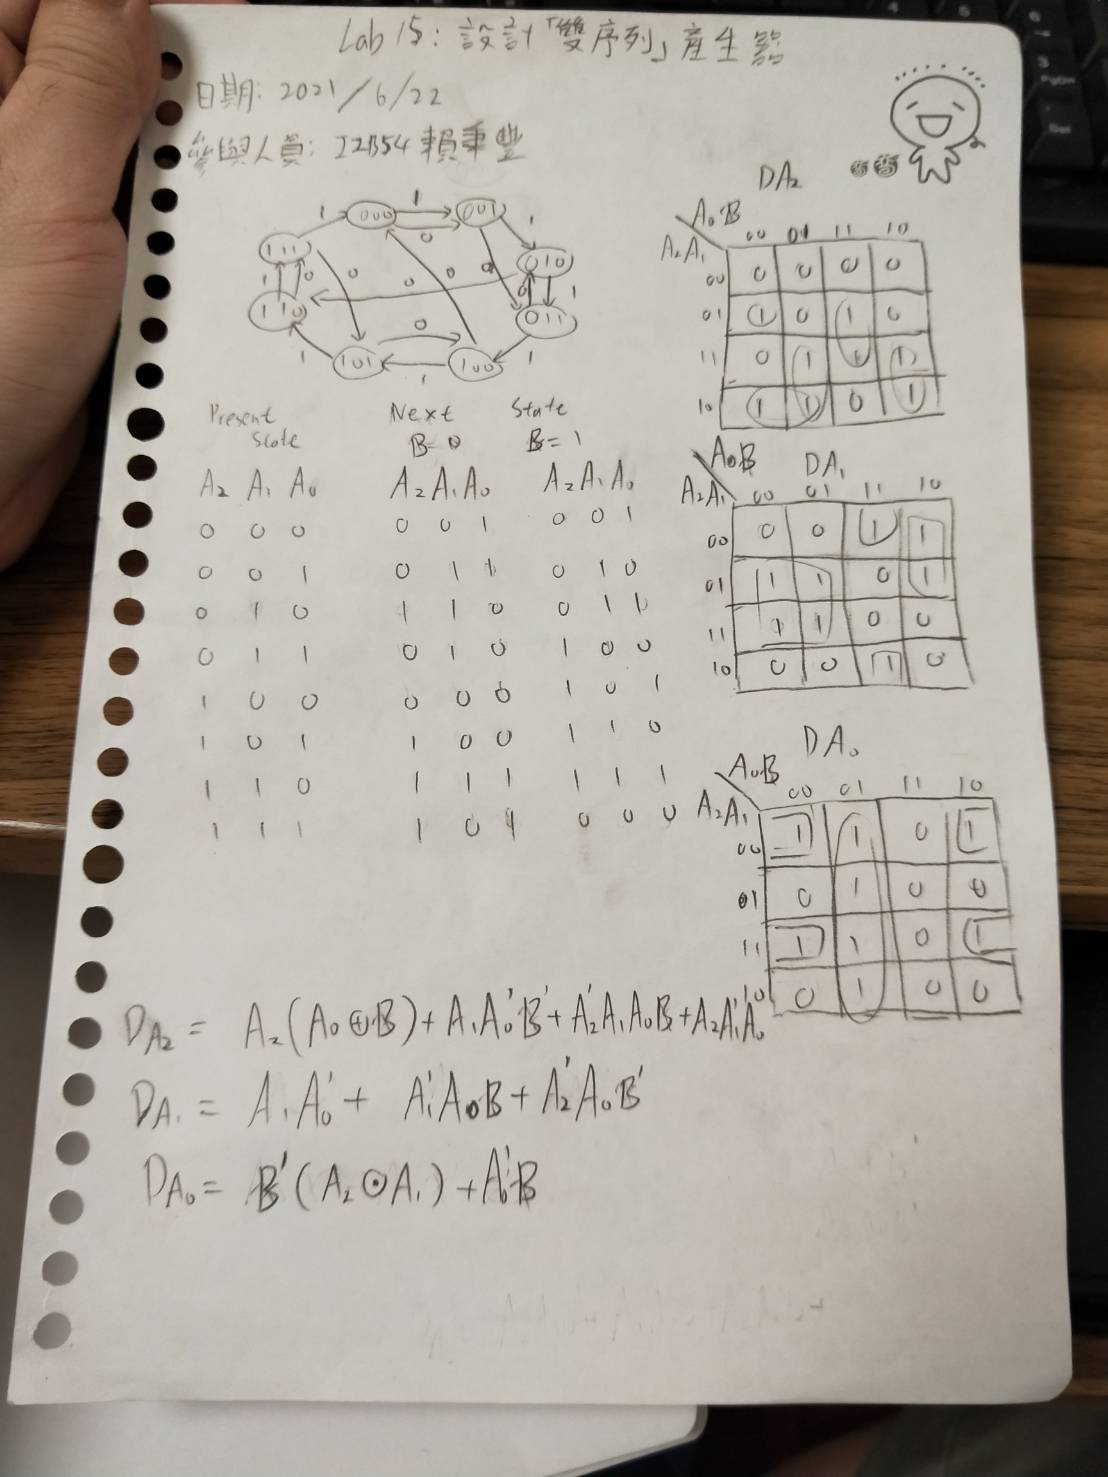 Lab 15: 設計「雙序列」產生器
日期: 2021/6/22
參與人員: I2B54 賴秉豐
香香
1 000 1 0 001 1
111 0 0 0 010
1 0 0 1
110 0 011
1 101 1 100 1
Present State
Next State
B=0 B=1
A₂ A₁ A₀ A₂ A₁ A₀ A₂ A₁ A₀
0 0 0 0 0 1 0 0 1
0 0 1 0 1 1 0 1 0
0 1 0 1 1 0 0 1 1
0 1 1 0 1 0 1 0 0
1 0 0 0 0 0 1 0 1
1 0 1 1 0 0 1 1 0
1 1 0 1 1 1 1 1 1
1 1 1 1 0 1 0 0 0
DA₂
A₀B
A₂A₁ 00 01 11 10
00 0 0 0 0
01 1 0 1 0
11 0 1 1 1
10 1 1 0 1
DA₁
A₀B
A₂A₁ 00 01 11 10
00 0 0 1 1
01 1 1 0 1
11 1 1 0 0
10 0 0 1 0
DA₀
A₀B
A₂A₁ 00 01 11 10
00 1 1 0 1
01 0 1 0 0
11 1 1 0 1
10 0 1 0 0
DA₂ = A₂(A₀⊕B)+A₁A₀'B'+A₂'A₁A₀B+A₂A₁'A₀'
DA₁ = A₁A₀'+ A₁'A₀B+A₂'A₀B'
DA₀ = B'(A₂⊙A₁)+A₀'B